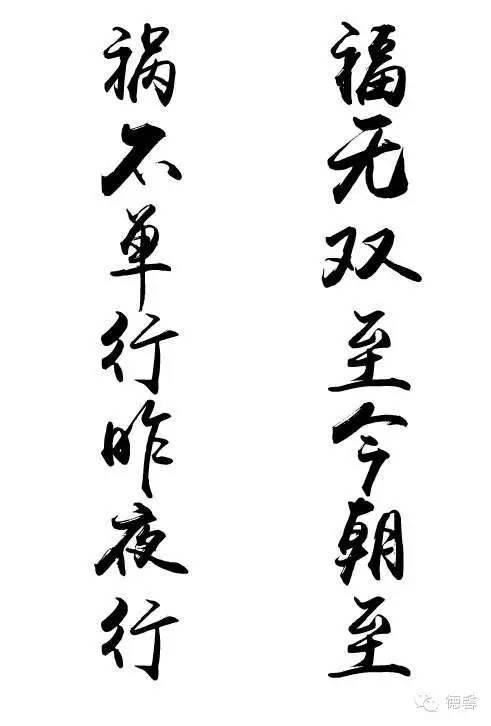 福无双至今朝至
祸不单行昨夜行
德馨